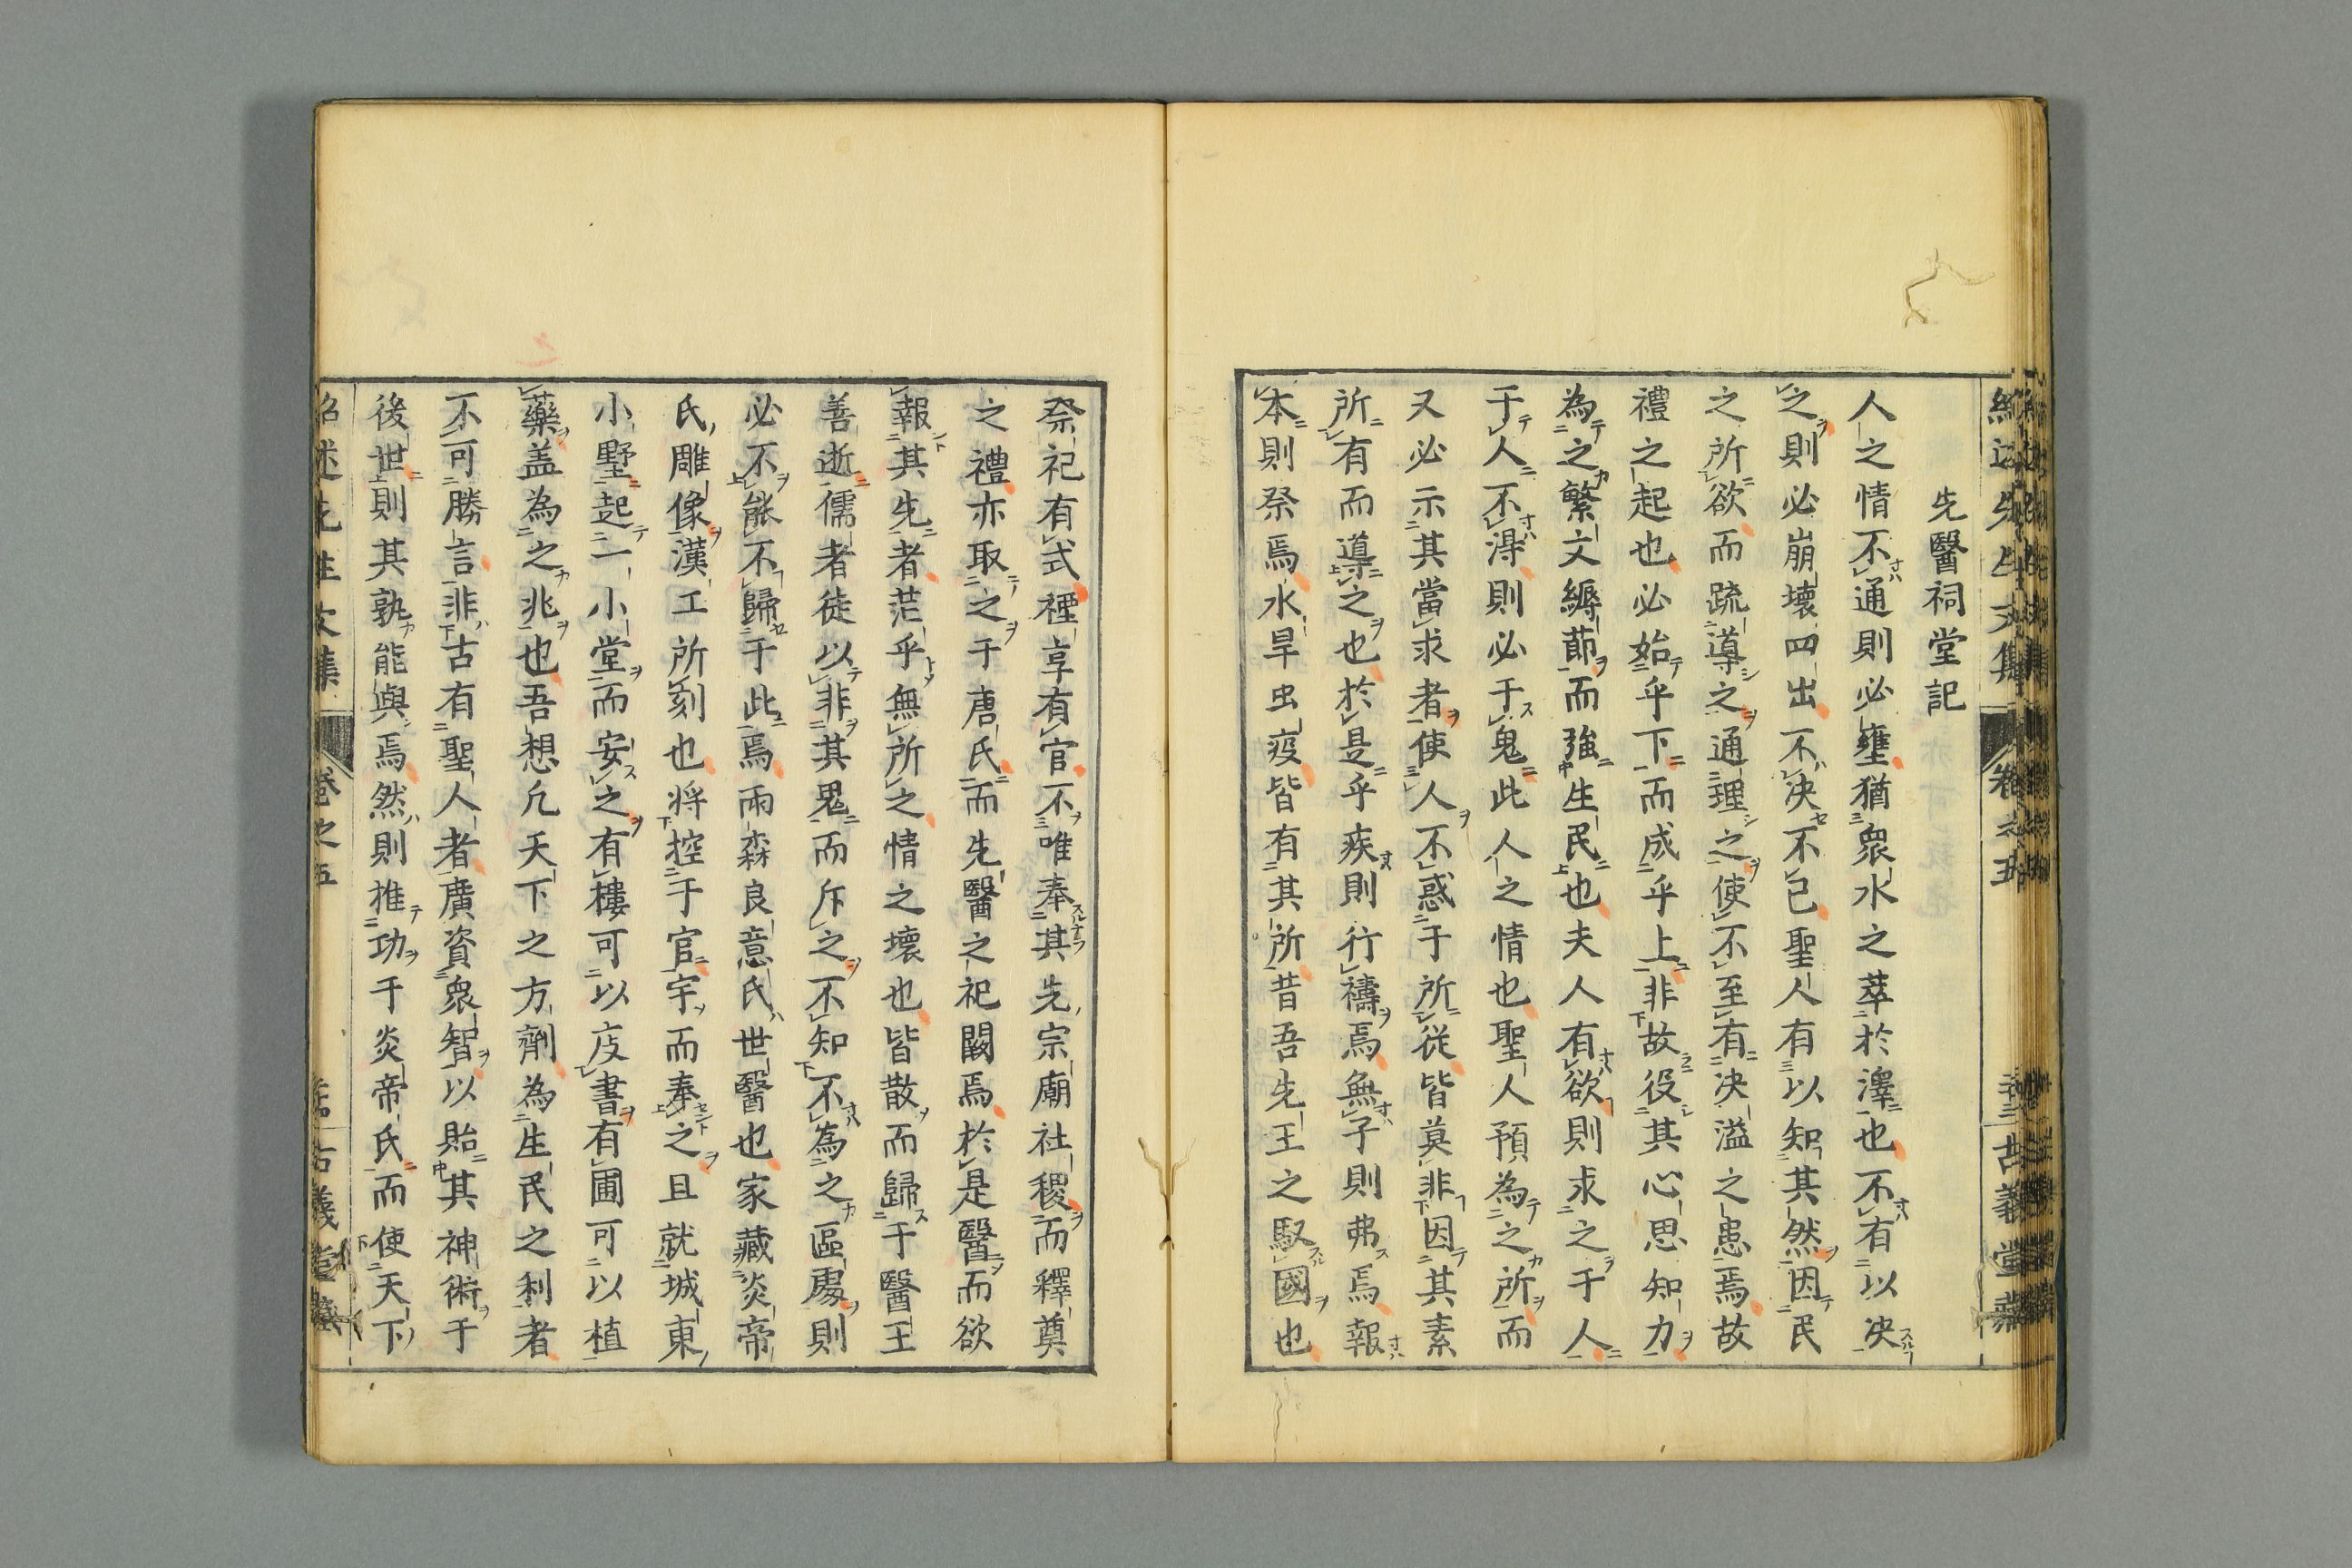 先醫祠堂記
人之情不通則必壅猶衆水之萃於澤也不有以决
之則必崩壞四出不决不已聖人有以知其然因民
之所欲而疏導之通理之使不至有决溢之患焉故
禮之起也必始乎下而成乎上非故役其心思知力
為之繁文縟莭而強生民也夫人有欲則求之于人
于人不得則必于鬼此人之情也聖人預為之所而
又必示其當求者使人不惑于所從皆莫非因其素
所有而導之也於是乎疾則行禱焉無子則弗焉報
本則祭焉水旱虫疫皆有其所昔吾先王之馭國也
祭祀有式禋享有官不唯奉其先宗廟社稷而釋奠
之禮亦取之于唐氏而先醫之祀闕焉於是醫而欲
報其先者茫乎無所之情之壞也皆散而歸于醫王
善逝儒者徒以非其鬼而斥之不知不為之區處則
必不能不歸于此焉雨森良意氏世醫也家藏炎帝
氏雕像漢工所刻也将控于官宇而奉之且就城東
小墅起一小堂而安之有樓可以庋書有圃可以植
藥盖為之兆也吾想凢天下之方劑為生民之利者
不可勝言非古有聖人者廣資衆智以貽其神術于
後世則其孰能與焉然則推功于炎帝氏而使天下